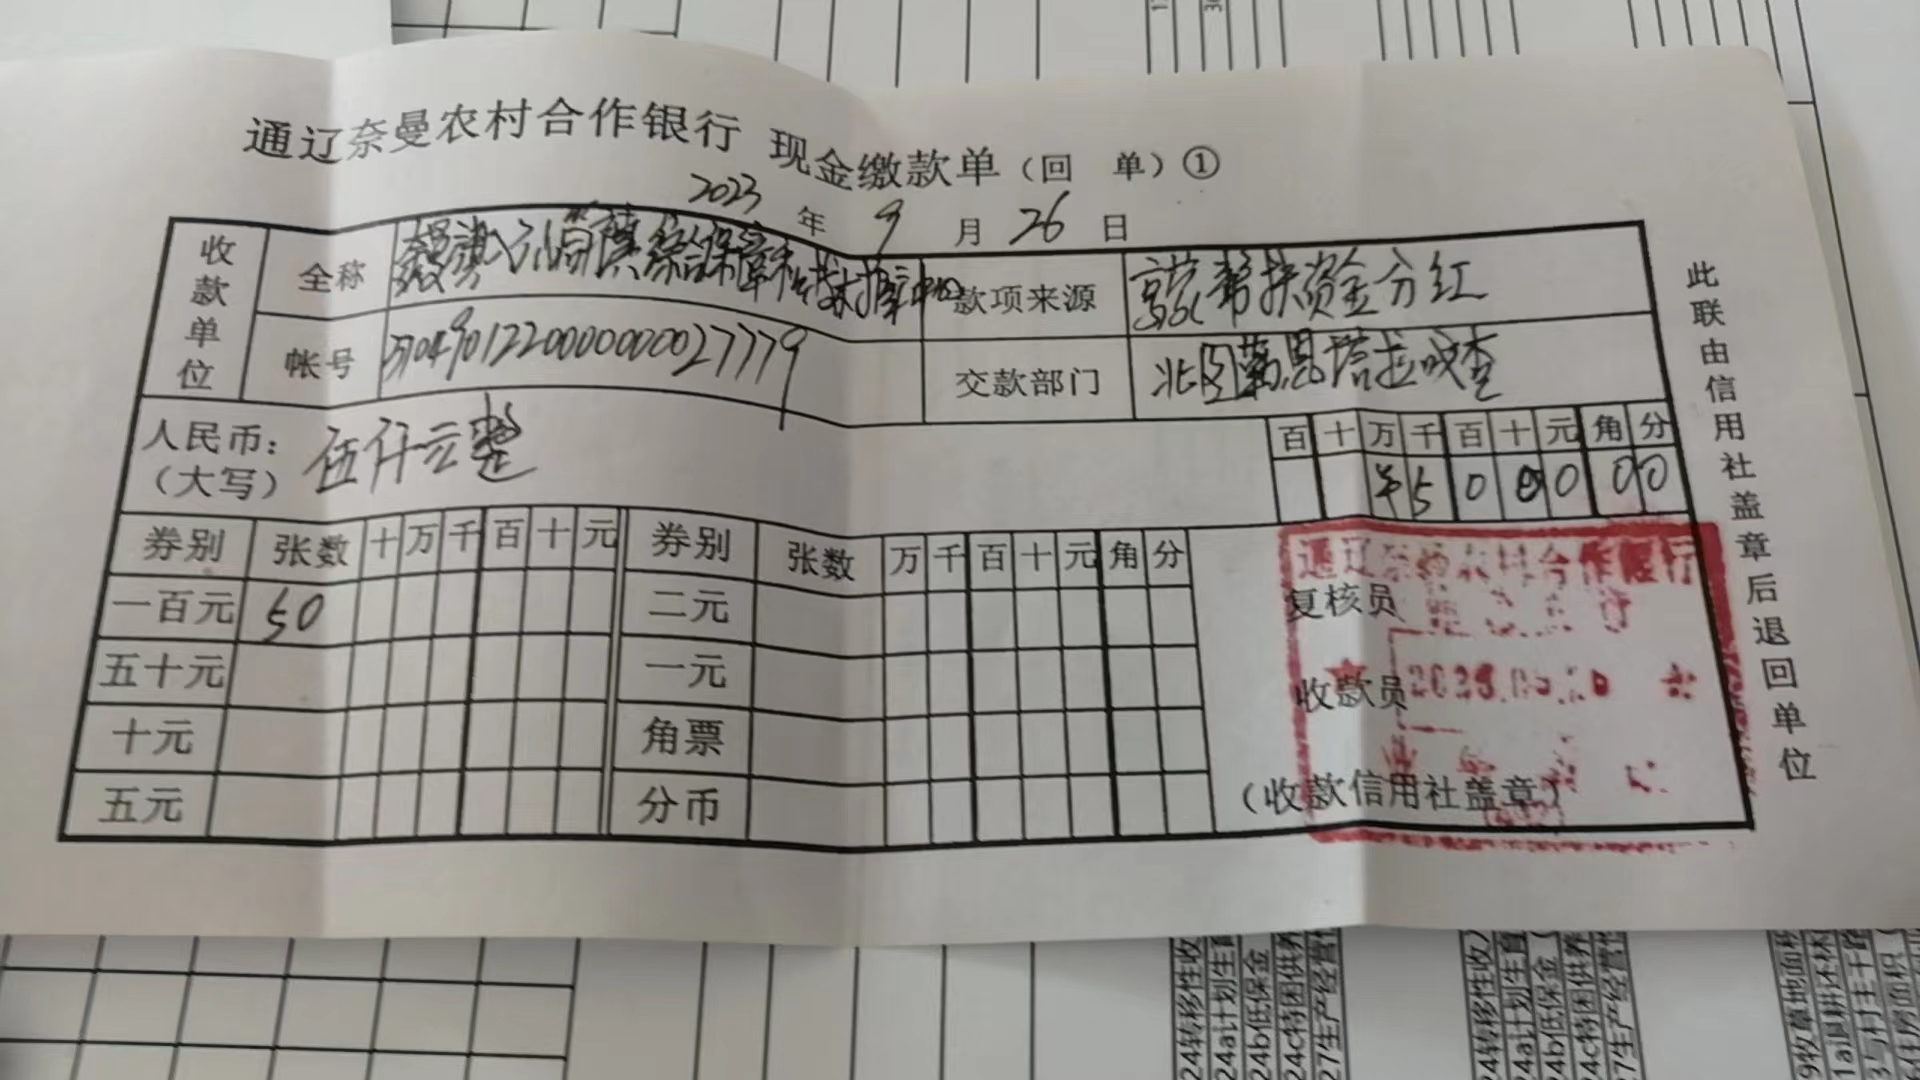 通辽奈曼农村合作银行 现金缴款单（回 单）①
2023 年 9 月 26 日
收款单位
全称
综合保障和技术推广中心
款项来源
京蒙帮扶资金分红
帐号
0122000000027779
交款部门
人民币：
（大写）
伍仟元整
百 十 万 千 百 十 元 角 分
¥ 5 0 0 0 0 0
券别 张数 十 万 千 百 十 元 券别 张数 万 千 百 十 元 角 分
一百元 50 二元
五十元 一元
十元 角票
五元 分币
通辽奈曼农村合作银行
复核员
收款员
（收款信用社盖章）
此联由信用社盖章后退回单位
24转移性收
24a计划生育
24b低保金
24c特困供养
27生产经营性
24转移性收入
24a计划生育
24b低保金
24c特困供养
27生产经营性
9牧草地面积
1a退耕还林
3与村主干路